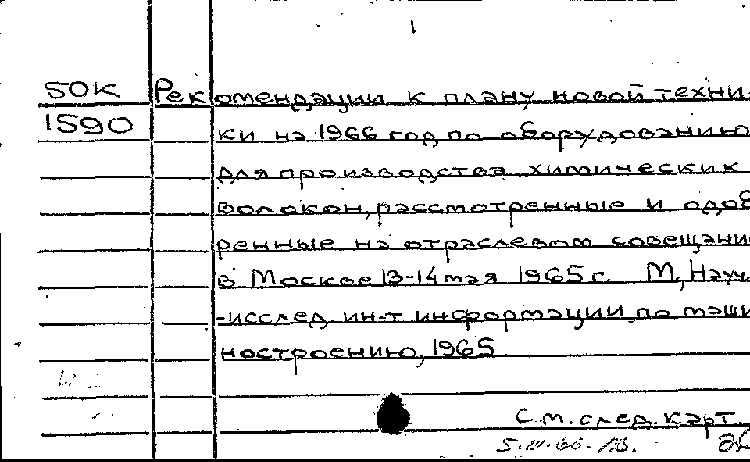 50К Рекомендации к плану новой техни-
1590 ки на 1966 год по оборудованию
для производства химических
волокон, рассмотренные и одоб
ренные на отраслевом совещани
в Москве 13-14 мая 1965 г. М, Науч.
-исслед. ин-т информации по маши
ностроению, 1965
С.м. след. карт.